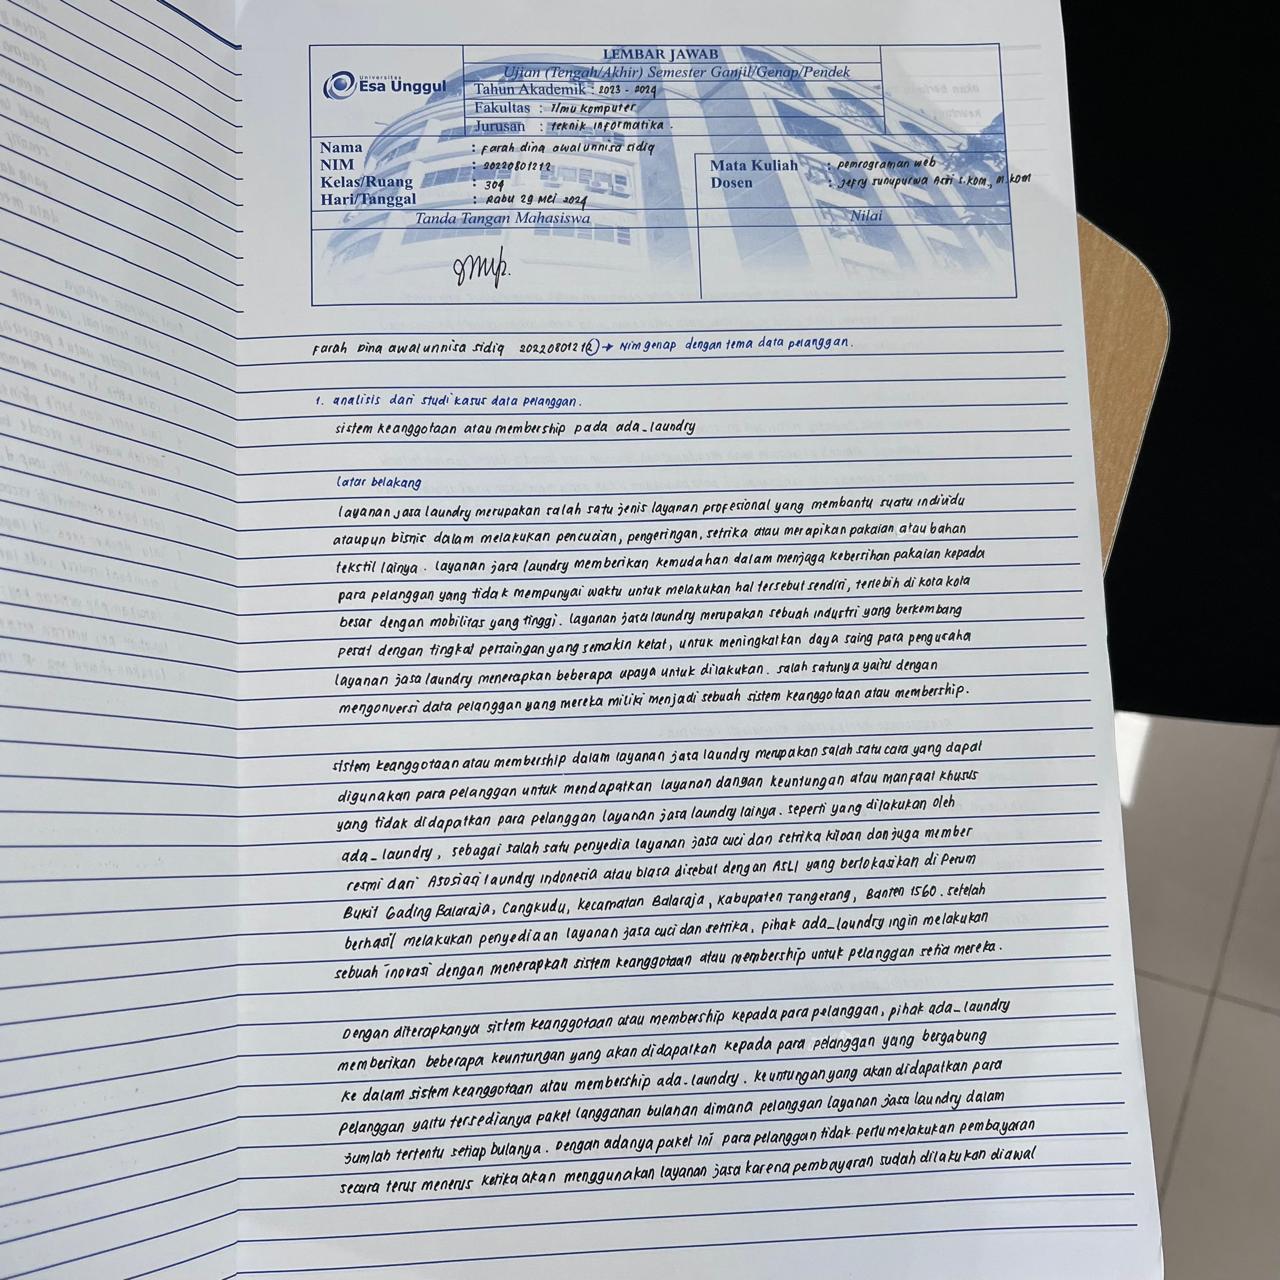 LEMBAR JAWAB
Universitas
Esa Unggul
Ujian (Tengah/Akhir) Semester Ganjil/Genap/Pendek
Tahun Akademik : 2023 - 2024
Fakultas : Ilmu Komputer
Jurusan : teknik informatika .
Nama : Farah dina awalunnisa sidiq
NIM : 20220801212
Kelas/Ruang : 304
Hari/Tanggal : Rabu 29 Mei 2024
Mata Kuliah : pemrograman web
Dosen : Jefry Sunupurwa Asri S.Kom., M.Kom
Tanda Tangan Mahasiswa
Nilai
Farah Dina awalunnisa sidiq 20220801212 → Nim genap dengan tema data pelanggan.
1. analisis dari studi kasus data pelanggan.
sistem keanggotaan atau membership pada ada_laundry
latar belakang
layanan jasa laundry merupakan salah satu jenis layanan profesional yang membantu suatu individu
ataupun bisnis dalam melakukan pencucian, pengeringan, setrika atau merapikan pakaian atau bahan
tekstil lainya. layanan jasa laundry memberikan kemudahan dalam menjaga kebersihan pakaian kepada
para pelanggan yang tidak mempunyai waktu untuk melakukan hal tersebut sendiri, terlebih di kota kota
besar dengan mobilitas yang tinggi. layanan jasa laundry merupakan sebuah industri yang berkembang
pesat dengan tingkat persaingan yang semakin ketat, untuk meningkatkan daya saing para pengusaha
layanan jasa laundry menerapkan beberapa upaya untuk dilakukan. salah satunya yaitu dengan
mengonversi data pelanggan yang mereka miliki menjadi sebuah sistem keanggotaan atau membership.
sistem keanggotaan atau membership dalam layanan jasa laundry merupakan salah satu cara yang dapat
digunakan para pelanggan untuk mendapatkan layanan dangan keuntungan atau manfaat khusus
yang tidak didapatkan para pelanggan layanan jasa laundry lainya. seperti yang dilakukan oleh
ada_laundry, sebagai salah satu penyedia layanan jasa cuci dan setrika kiloan dan juga member
resmi dari Asosiasi laundry indonesia atau biasa disebut dengan ASLI yang berlokasikan di Perum
Bukit Gading Balaraja, Cangkudu, Kecamatan Balaraja, Kabupaten Tangerang, Banten 1560. setelah
berhasil melakukan penyediaan layanan jasa cuci dan setrika, pihak ada_laundry ingin melakukan
sebuah inovasi dengan menerapkan sistem keanggotaan atau membership untuk pelanggan setia mereka.
Dengan diterapkanya sistem keanggotaan atau membership kepada para pelanggan, pihak ada_laundry
memberikan beberapa keuntungan yang akan didapatkan kepada para pelanggan yang bergabung
ke dalam sistem keanggotaan atau membership ada_laundry. keuntungan yang akan didapatkan para
pelanggan yaitu tersedianya paket langganan bulanan dimana pelanggan layanan jasa laundry dalam
jumlah tertentu setiap bulanya. Dengan adanya paket ini para pelanggan tidak perlu melakukan pembayaran
secara terus menerus ketika akan menggunakan layanan jasa karena pembayaran sudah dilakukan diawal